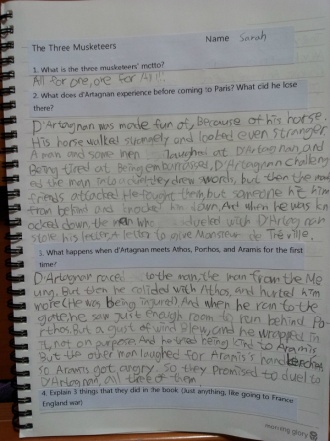 The Three Musketeers
Name Sarah
1. What is the three musketeers' motto?
All for one, one for all!!
2. What does d'Artagnan experience before coming to Paris? What did he lose
there?
D'Artagnan was made fun of, Because of his horse.
His horse walked and looked even stranger
A man and some men laughed at D'Artagnan, and
Being tired at Being embarrassed, D'Artagnan challeng
ed the man into a duel they drew swords, but then the man's
friends attacked. He fought them, but someone hit him
from behind and knocked him down. And when he was kn
ocked down, the man who dueled with D'Artagnan
stole his letter, A letter to give Monsieur de Tréville.
3. What happens when d'Artagnan meets Athos, Porthos, and Aramis for the first
time?
D'Artagnan raced to the man, the man from the Me
ung. But then he collided with Athos, and hurted him
more (He was being injured) And when he ran to the
gate, he saw just enough room to run behind Po
rthos. But a gust of wind blew, and he wrapped in
it, not on purpose. And he tried being kind to Aramis
But the other man laughed for Aramis's handkerchief
so Aramis got angry. so they promised to duel to
D'Artagnan, all three of them.
4. Explain 3 things that they did in the book (Just anything, like going to France
England war)
morning glory